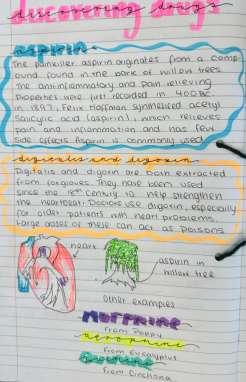 discovering drugs
aspirin
The painkiller aspirin originates from a comp
ound found in the bark of willow trees.
The antiinflammatory and pain relieving
Properties were first recorded in 400BC
in 1897, Felix Hoffman synthesised acetyl
Salicylic acid (aspirin), which relieves
pain and inflammation and has few
side effects Aspirin is commonly used.
digitalis and digoxin
Digitalis and digoxin are both extracted
from foxgloves. They have been used
since the 18th Century to help strengthen
the heartbeat. Doctors use digoxin, especially
for older patients with heart problems.
Large doses of these can act as poisons
heart
aspirin in
willow tree
Other examples
morphine
from Poppy
from Eucalyptus
Quinine
from Cinchona